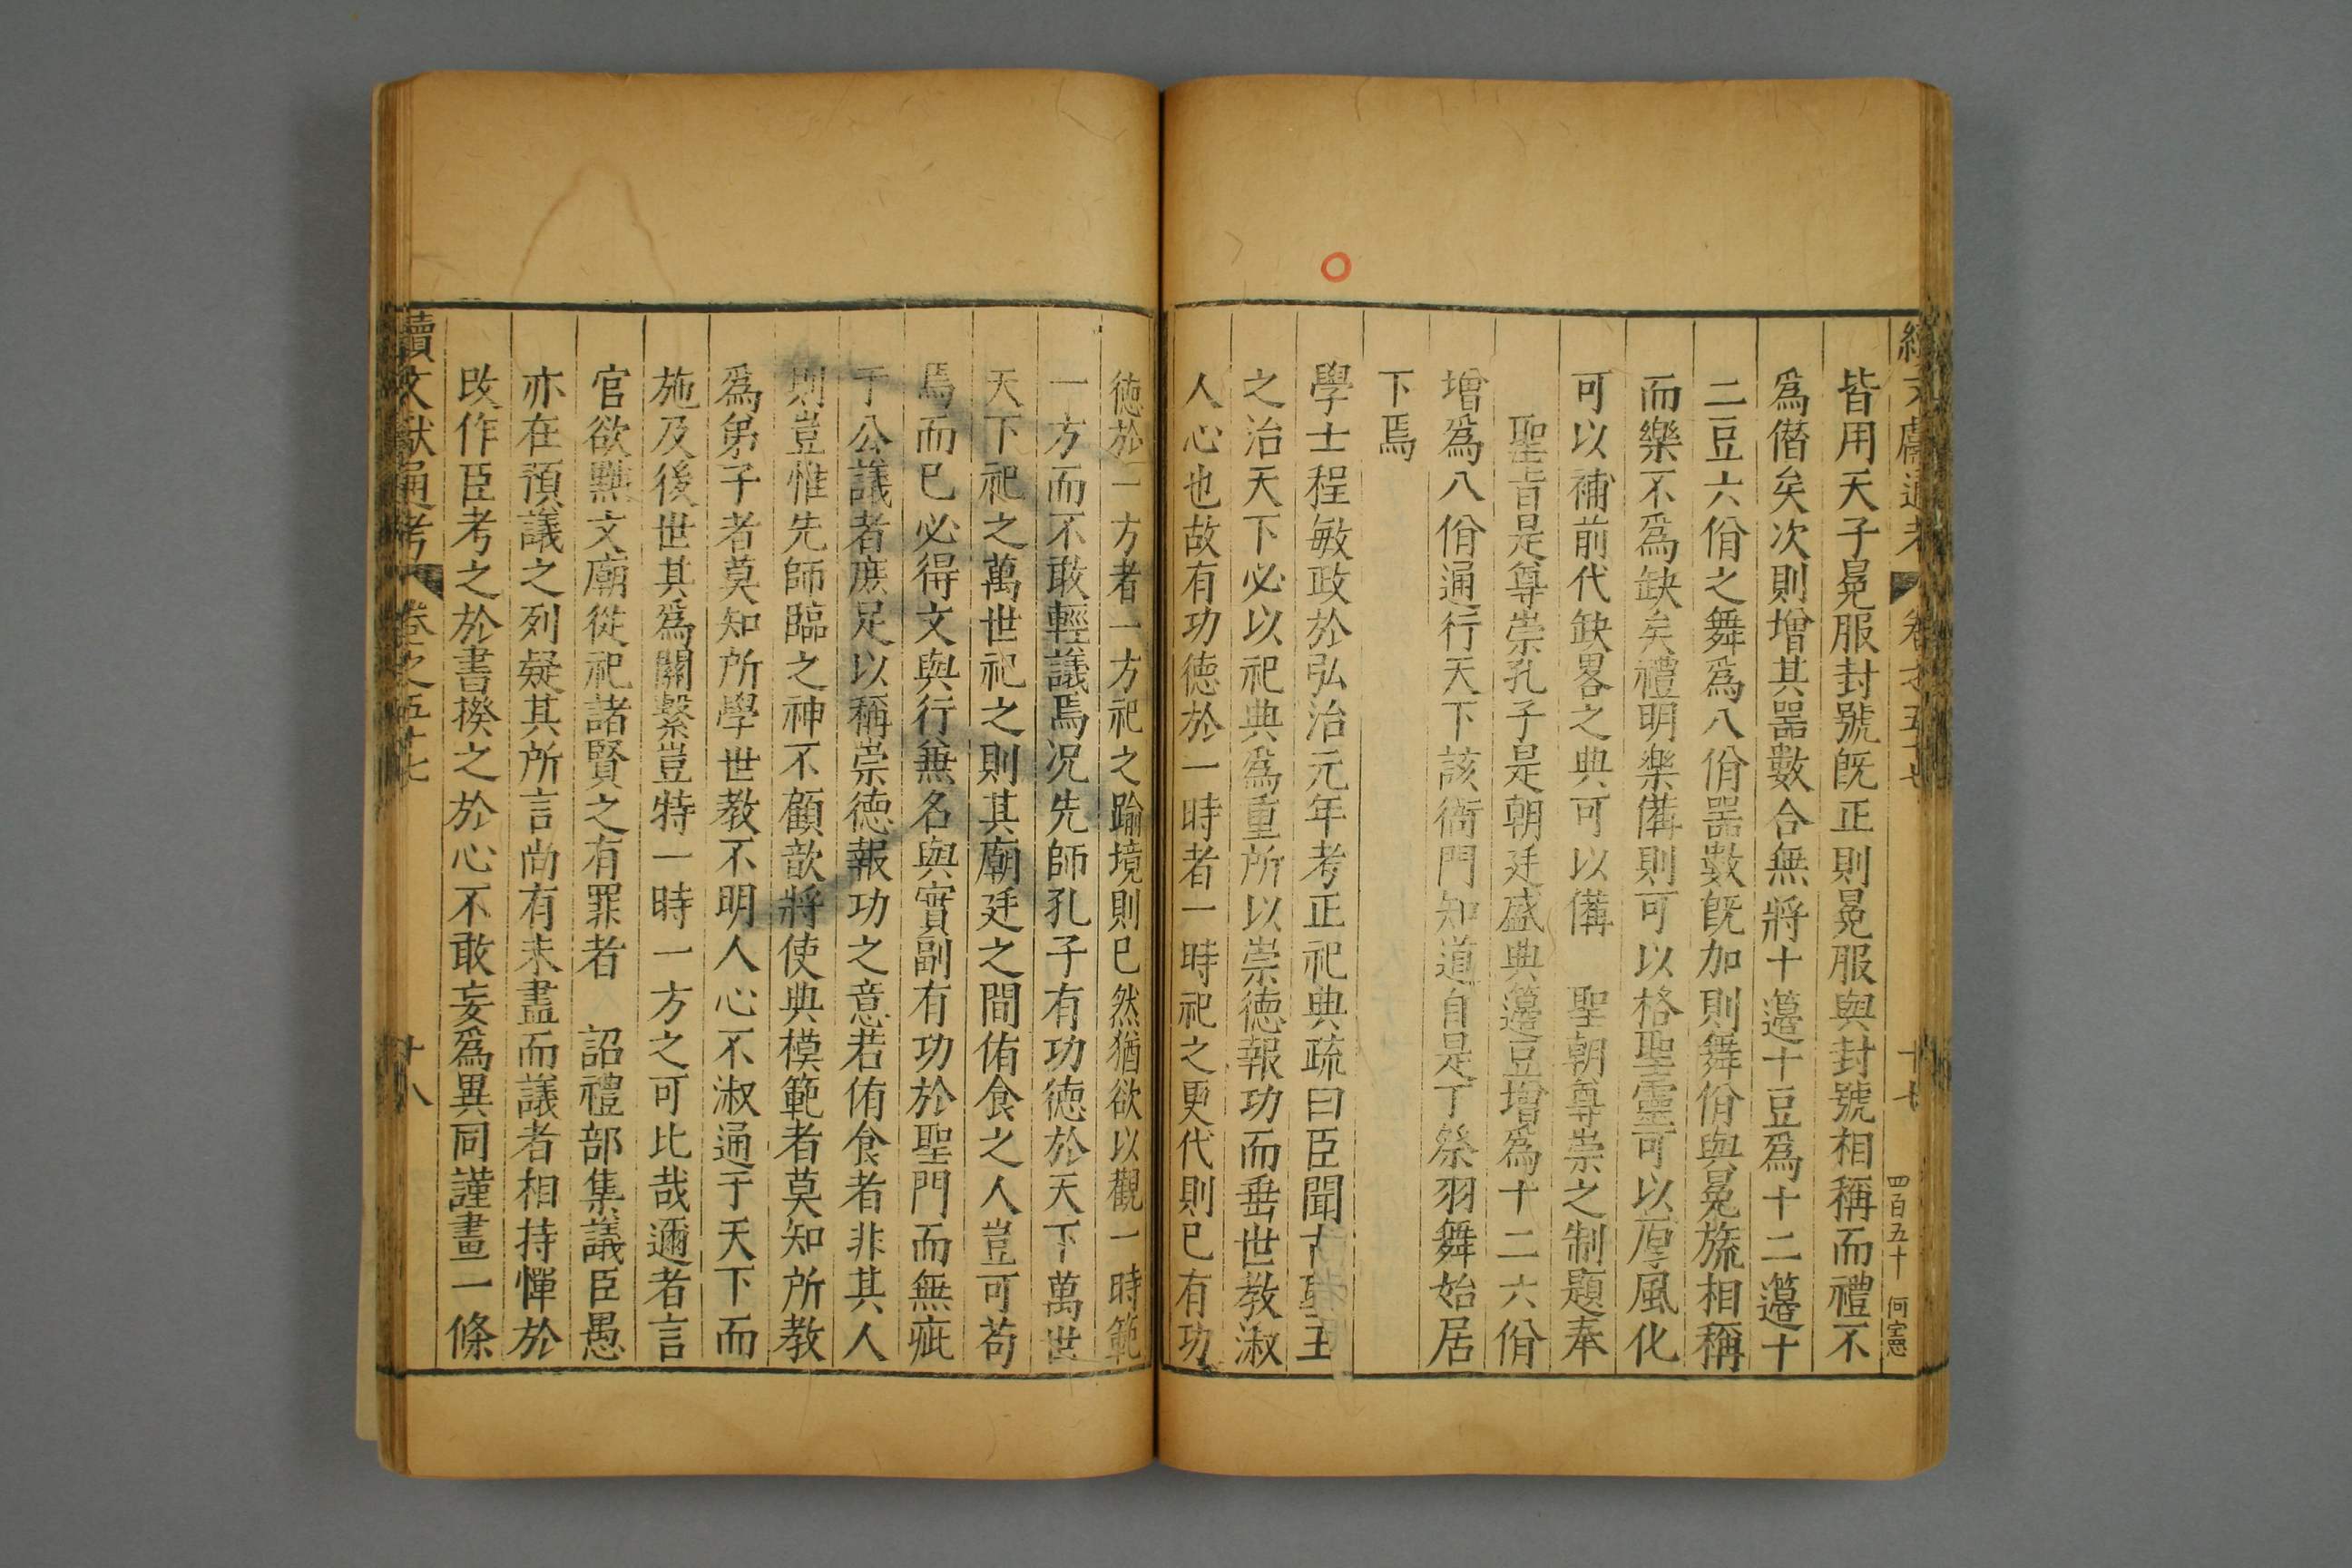 續文獻通考 卷之五十七 十七 四百五十
皆用天子冕服封號旣正則冕服與封號相稱而禮不
爲僭矣次則增其噐數合無將十籩十豆爲十二籩十
二豆六佾之舞爲八佾噐數旣加則舞佾與冕旒相稱
而樂不爲缺矣禮明樂僃則可以格聖靈可以厚風化
可以補前代缺畧之典可以僃 聖朝尊崇之制題奉
聖旨是尊崇孔子是朝廷盛典籩豆增爲十二六佾
增爲八佾通行天下該衙門知道自是丁祭羽舞始居
下焉
學士程敏政於弘治元年考正祀典疏曰臣聞古聖王
之治天下必以祀典爲重所以崇德報功而垂世教淑
人心也故有功德於一時者一時祀之更代則已有功
德於一方者一方祀之踰境則已然猶欲以觀一時範
一方而不敢輕議焉况先師孔子有功德於天下萬世
天下祀之萬世祀之則其廟廷之間侑食之人豈可苟
焉而已必得文與行兼名與實副有功於聖門而無疵
于公議者庶足以稱崇德報功之意若侑食者非其人
則豈惟先師臨之神不顧歆將使典模範者莫知所教
爲弟子者莫知所學世教不明人心不淑通于天下而
施及後世其爲關繫豈特一時一方之可比哉邇者言
官欲黜文廟從祀諸賢之有罪者 詔禮部集議臣愚
亦在預議之列疑其所言尚有未盡而議者相持憚於
改作臣考之於書揆之於心不敢妄爲異同謹畫一條
續文獻通考 卷之五十七 十八